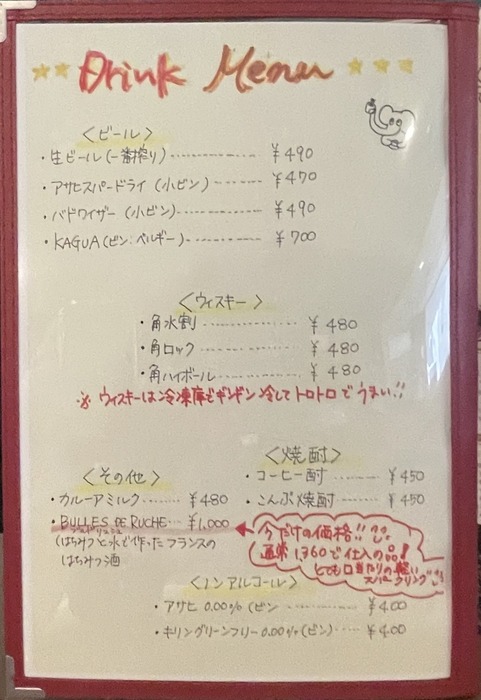 Drink Menu
<ビール>
・生ビール(一番搾り)---------- ¥490
・アサヒスーパードライ(小ビン)------ ¥470
・バドワイザー(小ビン)---------- ¥490
・KAGUA(ビン:ベルギー)--------- ¥700
<ウィスキー>
・角水割 ------------- ¥480
・角ロック ------------ ¥480
・角ハイボール ---------- ¥480
※ウィスキーは冷凍庫でギンギン冷してトロトロでうまい!!
<その他>
・カルーアミルク------ ¥480
・BULLES DE RUCHE--- ¥1,000
(はちみつと水で作ったフランスの
はちみつ酒
<焼酎>
・コーヒー酎------ ¥450
・こんぶ焼酎------ ¥450
今だけの価格!!
通常1,760で仕入の品!
とても口当たりの軽い
スパークリング!
<ノンアルコール>
・アサヒ 0.00%(ビン ------- ¥400
・キリングリーンフリー0.00%(ビン)----- ¥400